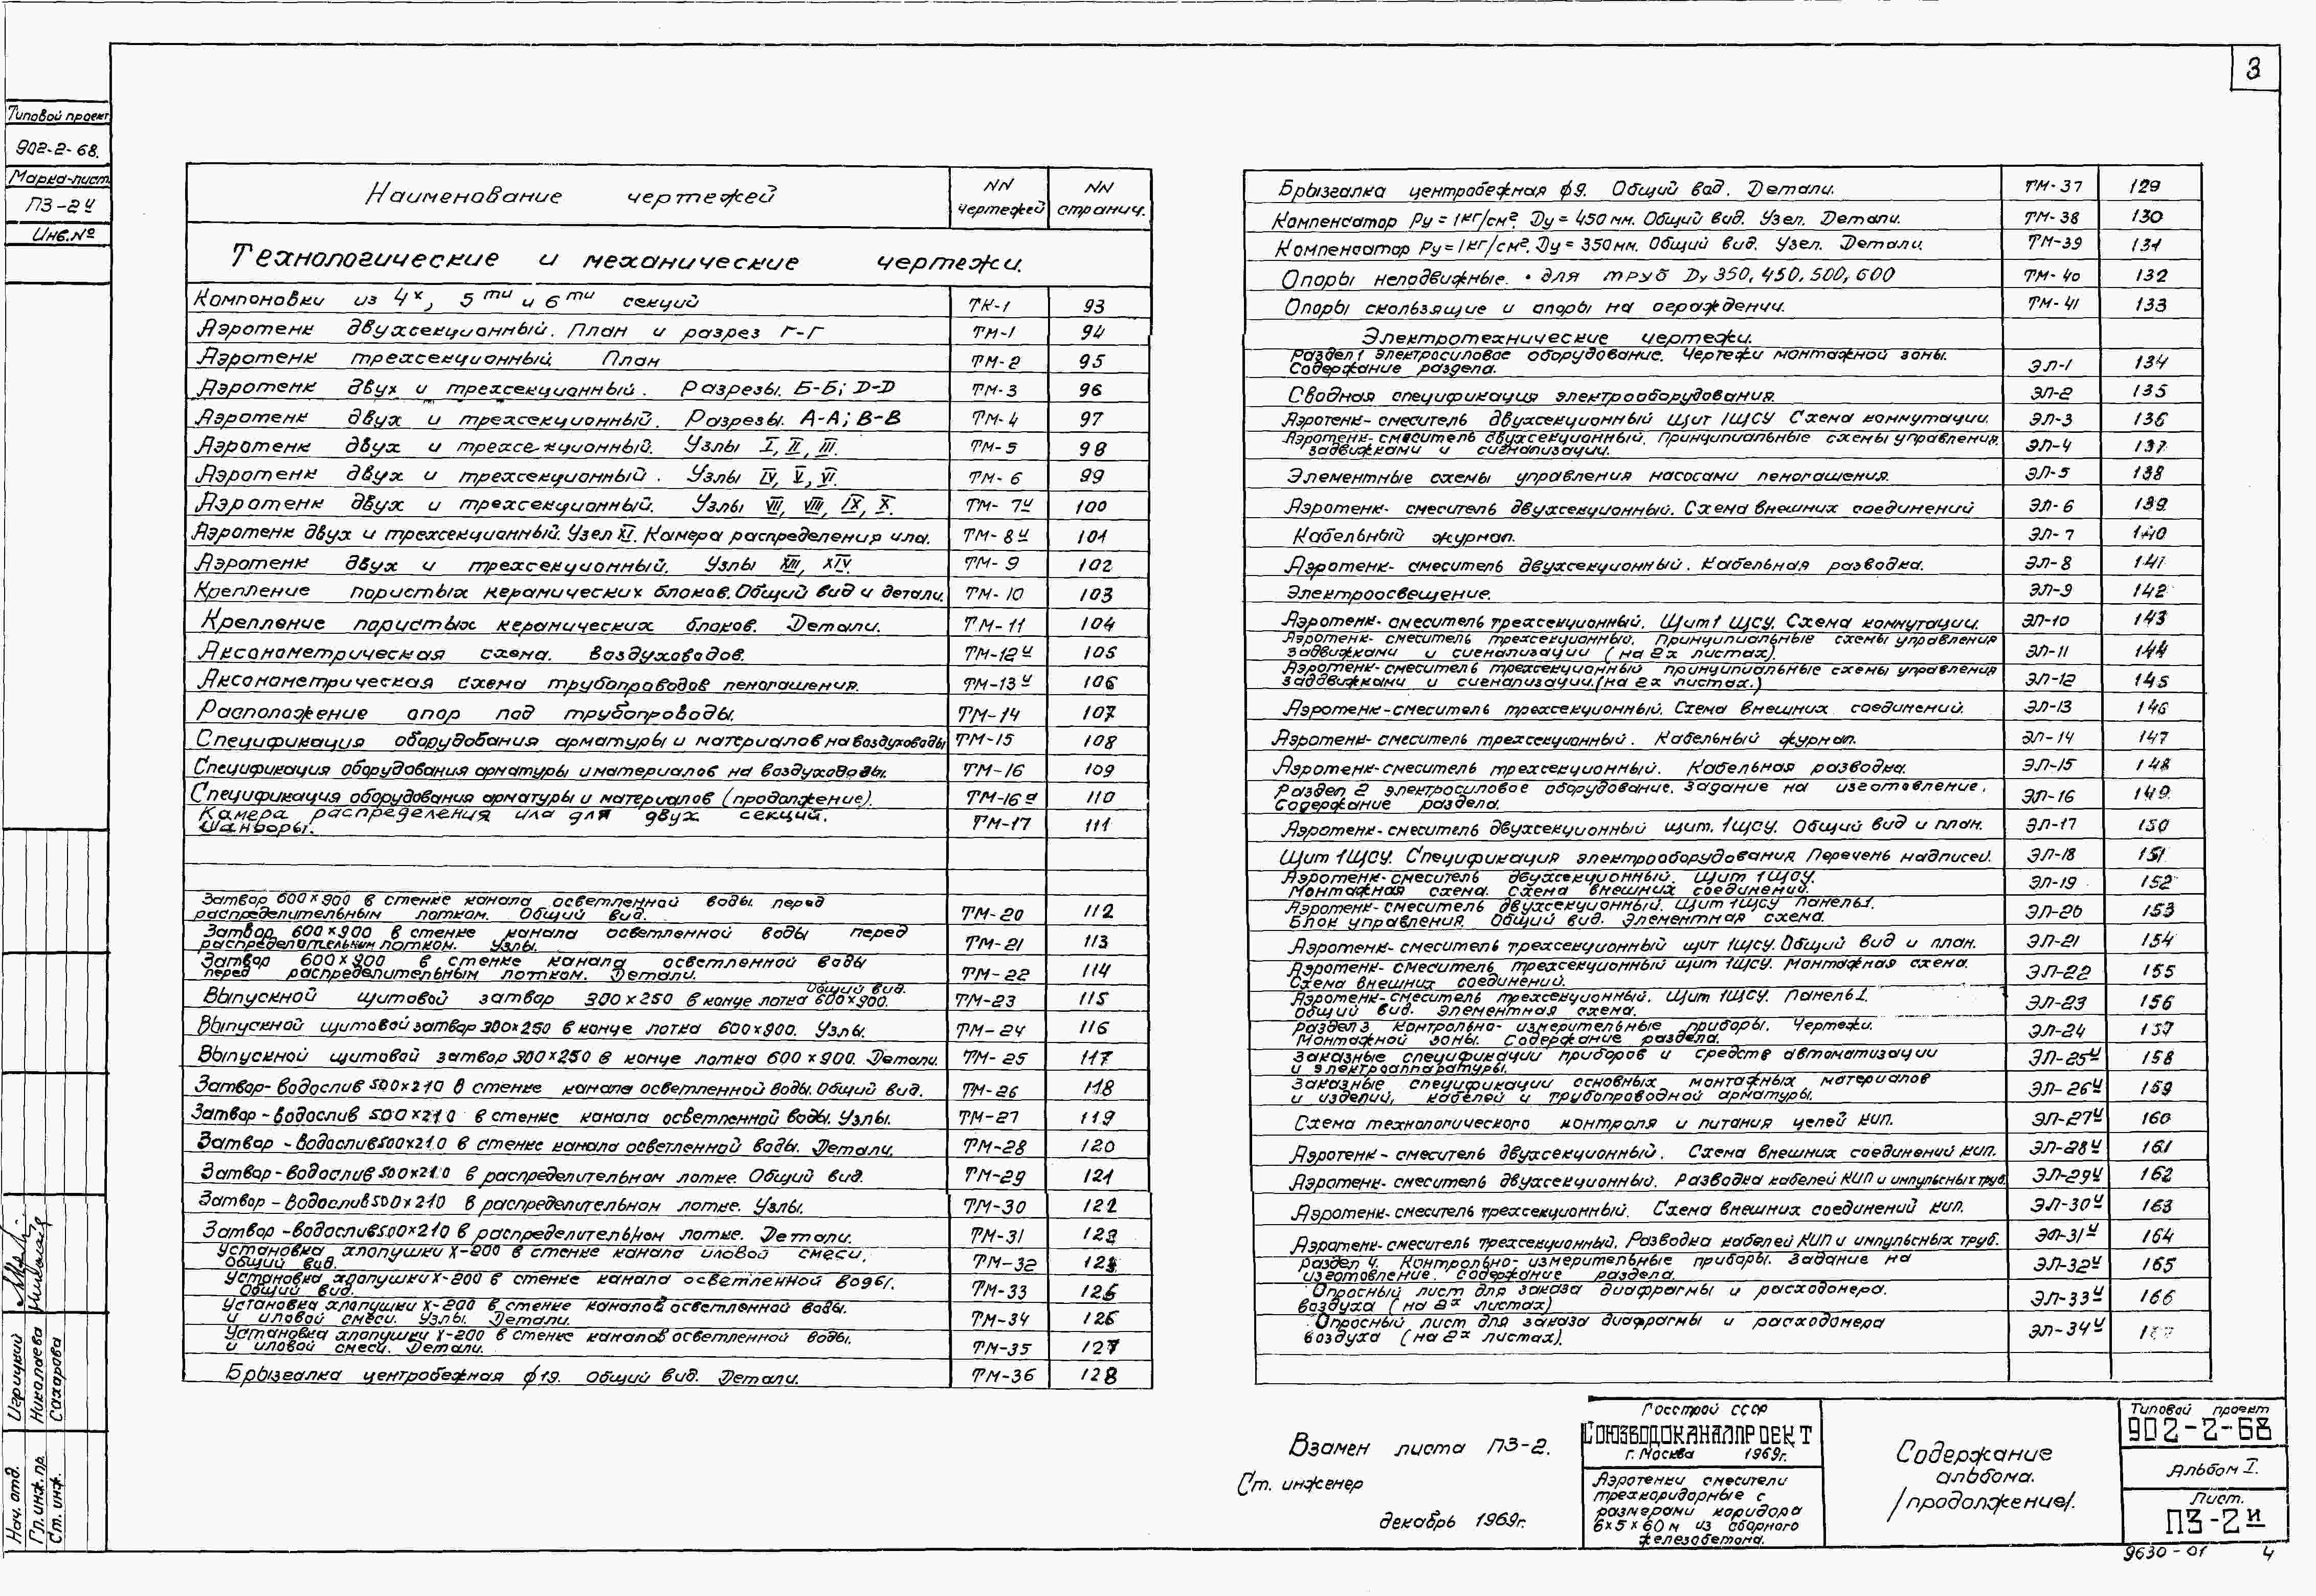 3
Типовой проект
902-2-68.
Марка-лист
ПЗ-2и
Инв.№
Наименование чертежей
NN чертежей
NN страниц.
Технологические и механические чертежи.
Компоновки из 4х, 5ти и 6ти секций ТК-1 93
Аэротенк двухсекционный. План и разрез Г-Г ТМ-1 94
Аэротенк трехсекционный План ТМ-2 95
Аэротенк двух и трехсекционный. Разрезы. Б-Б; D-D ТМ-3 96
Аэротенк двух и трехсекционный. Разрезы. А-А; В-В ТМ-4 97
Аэротенк двух и трехсекционный. Узлы I, II, III. ТМ-5 98
Аэротенк двух и трехсекционный. Узлы IV, V, VI. ТМ-6 99
Аэротенк двух и трехсекционный. Узлы VII, VIII, IX, X. ТМ-7и 100
Аэротенк двух и трехсекционный. Узел XI. Камера распределения ила. ТМ-8и 101
Аэротенк двух и трехсекционный. Узлы XIII, XIV. ТМ-9 102
Крепление пористых керамических блоков. Общий вид и детали. ТМ-10 103
Крепление пористых керамических блоков. Детали. ТМ-11 104
Аксонометрическая схема. воздуховодов. ТМ-12и 105
Аксонометрическая схема трубопроводов пеногашения. ТМ-13и 106
Расположение опор под трубопроводы. ТМ-14 107
Спецификация оборудования арматуры и материалов на воздуховоды ТМ-15 108
Спецификация оборудования арматуры и материалов на воздуховоды. ТМ-16 109
Спецификация оборудования арматуры и материалов (продолжение). ТМ-16а 110
Камера распределения ила для двух секций.
Шандоры. ТМ-17 111
Затвор 600×900 в стенке канала осветленной воды перед
распределительным лотком. Общий вид. ТМ-20 112
Затвор 600×900 в стенке канала осветленной воды перед
распределительным лотком. Узлы. ТМ-21 113
Затвор 600×900 в стенке канала осветленной воды
перед распределительным лотком. Детали. ТМ-22 114
Выпускной щитовой затвор 300×250 в конце лотка 600×900. Общий вид. ТМ-23 115
Выпускной щитовой затвор 300×250 в конце лотка 600×900. Узлы. ТМ-24 116
Выпускной щитовой затвор 300×250 в конце лотка 600×900. Детали. ТМ-25 117
Затвор-водослив 500×210 в стенке канала осветленной воды. Общий вид. ТМ-26 118
Затвор-водослив 500×210 в стенке канала осветленной воды. Узлы. ТМ-27 119
Затвор-водослив 500×210 в стенке канала осветленной воды. Детали. ТМ-28 120
Затвор-водослив 500×210 в распределительном лотке. Общий вид. ТМ-29 121
Затвор-водослив 500×210 в распределительном лотке. Узлы. ТМ-30 122
Затвор-водослив 500×210 в распределительном лотке. Детали. ТМ-31 123
Установка хлопушки Х-200 в стенке канала иловой смеси.
Общий вид. ТМ-32
Установка хлопушки Х-200 в стенке канала осветленной воды.
Общий вид. ТМ-33 125
Установка хлопушки Х-200 в стенке каналов осветленной воды.
и иловой смеси. Узлы. Детали. ТМ-34 126
Установка хлопушки Х-200 в стенке каналов осветленной воды.
и иловой смеси. Детали. ТМ-35 127
Брызгалка центробежная ф19. Общий вид. Детали. ТМ-36 128
Брызгалка центробежная ф9. Общий вид. Детали. ТМ-37 129
Компенсатор Ру=1кг/см². Ду=450 мм. Общий вид. Узел. Детали. ТМ-38 130
Компенсатор Ру=1кг/см². Ду=350мм. Общий вид. Узел. Детали. ТМ-39 131
Опоры неподвижные. для труб Dу 350, 450, 500, 600 ТМ-40 132
Опоры скользящие и опоры на ограждении. ТМ-41 133
Электротехнические чертежи.
Раздел 1 Электросиловое оборудование. Чертежи монтажной зоны.
Содержание раздела. ЭЛ-1 134
Сводная спецификация электрооборудования. ЭЛ-2 135
Аэротенк-смеситель двухсекционный Щит 1ЩСУ Схема коммутации. ЭЛ-3 136
Аэротенк-смеситель двухсекционный. Принципиальные схемы управления
задвижками и сигнализации. ЭЛ-4 137
Элементные схемы управления насосами пеногашения. ЭЛ-5 138
Аэротенк-смеситель двухсекционный. Схема внешних соединений ЭЛ-6 139
Кабельный журнал. ЭЛ-7 140
Аэротенк-смеситель двухсекционный. Кабельная разводка. ЭЛ-8 141
Электроосвещение. ЭЛ-9 142
Аэротенк-смеситель трехсекционный. Щит 1 ЩСУ. Схема коммутации. ЭЛ-10 143
Аэротенк-смеситель трехсекционный. Принципиальные схемы управления
задвижками и сигнализации (на 2х листах). ЭЛ-11 144
Аэротенк-смеситель трехсекционный принципиальные схемы управления
задвижками и сигнализации. (на 2х листах.) ЭЛ-12 145
Аэротенк-смеситель трехсекционный. Схема внешних соединений. ЭЛ-13 146
Аэротенк-смеситель трехсекционный. Кабельный журнал. ЭЛ-14 147
Аэротенк-смеситель трехсекционный. Кабельная разводка. ЭЛ-15 148
Раздел 2 электросиловое оборудование. Задание на изготовление.
Содержание раздела. ЭЛ-16 149
Аэротенк-смеситель двухсекционный щит. 1ЩСУ. Общий вид и план. ЭЛ-17 150
Щит 1ЩСУ. Спецификация электрооборудования Перечень надписей. ЭЛ-18 151
Аэротенк-смеситель двухсекционный. Щит 1ЩСУ.
Монтажная схема. Схема внешних соединений. ЭЛ-19 152
Аэротенк-смеситель двухсекционный. Щит 1ЩСУ Панель 1.
Блок управления. Общий вид. Элементная схема. ЭЛ-20 153
Аэротенк-смеситель трехсекционный щит 1ЩСУ. Общий вид и план. ЭЛ-21 154
Аэротенк-смеситель трехсекционный щит 1ЩСУ. Монтажная схема.
Схема внешних соединений. ЭЛ-22 155
Аэротенк-смеситель трехсекционный. Щит 1ЩСУ. Панель 1.
Общий вид. Элементная схема. ЭЛ-23 156
Раздел 3 Контрольно-измерительные приборы. Чертежи.
Монтажной зоны. Содержание раздела. ЭЛ-24 157
Заказные спецификации приборов и средств автоматизации
и электроаппаратуры. ЭЛ-25и 158
Заказные спецификации основных монтажных материалов
и изделий, кабелей и трубопроводной арматуры. ЭЛ-26и 159
Схема технологического контроля и питания цепей КИП. ЭЛ-27и 160
Аэротенк-смеситель двухсекционный. Схема внешних соединений КИП. ЭЛ-28и 161
Аэротенк-смеситель двухсекционный. Разводка кабелей КИП и импульсных труб. ЭЛ-29и 162
Аэротенк-смеситель трехсекционный. Схема внешних соединений КИП. ЭЛ-30и 163
Аэротенк-смеситель трехсекционный. Разводка кабелей КИП и импульсных труб. ЭЛ-31и 164
Раздел 4. Контрольно-измерительные приборы. Задание на
изготовление. Содержание раздела. ЭЛ-32и 165
Опросный лист для заказа диафрагмы и расходомера.
воздуха (на 2х листах) ЭЛ-33и 166
Опросный лист для заказа диафрагмы и расходомера
воздуха (на 2х листах). ЭЛ-34и
Нач. отд. Игрицкий
Гл. инж. пр. Николаева
Ст. инж. Сахарова
Взамен листа ПЗ-2.
Ст. инженер
декабрь 1969г.
Госстрой СССР
СОЮЗВОДОКАНАЛПРОЕКТ
г. Москва 1969г.
Аэротенки смесители
трехкоридорные с
размерами коридора
6×5×60м из сборного
железобетона.
Содержание
альбома.
/продолжение/.
Типовой проект
902-2-68
Альбом I.
Лист.
ПЗ-2и
9630-01 4